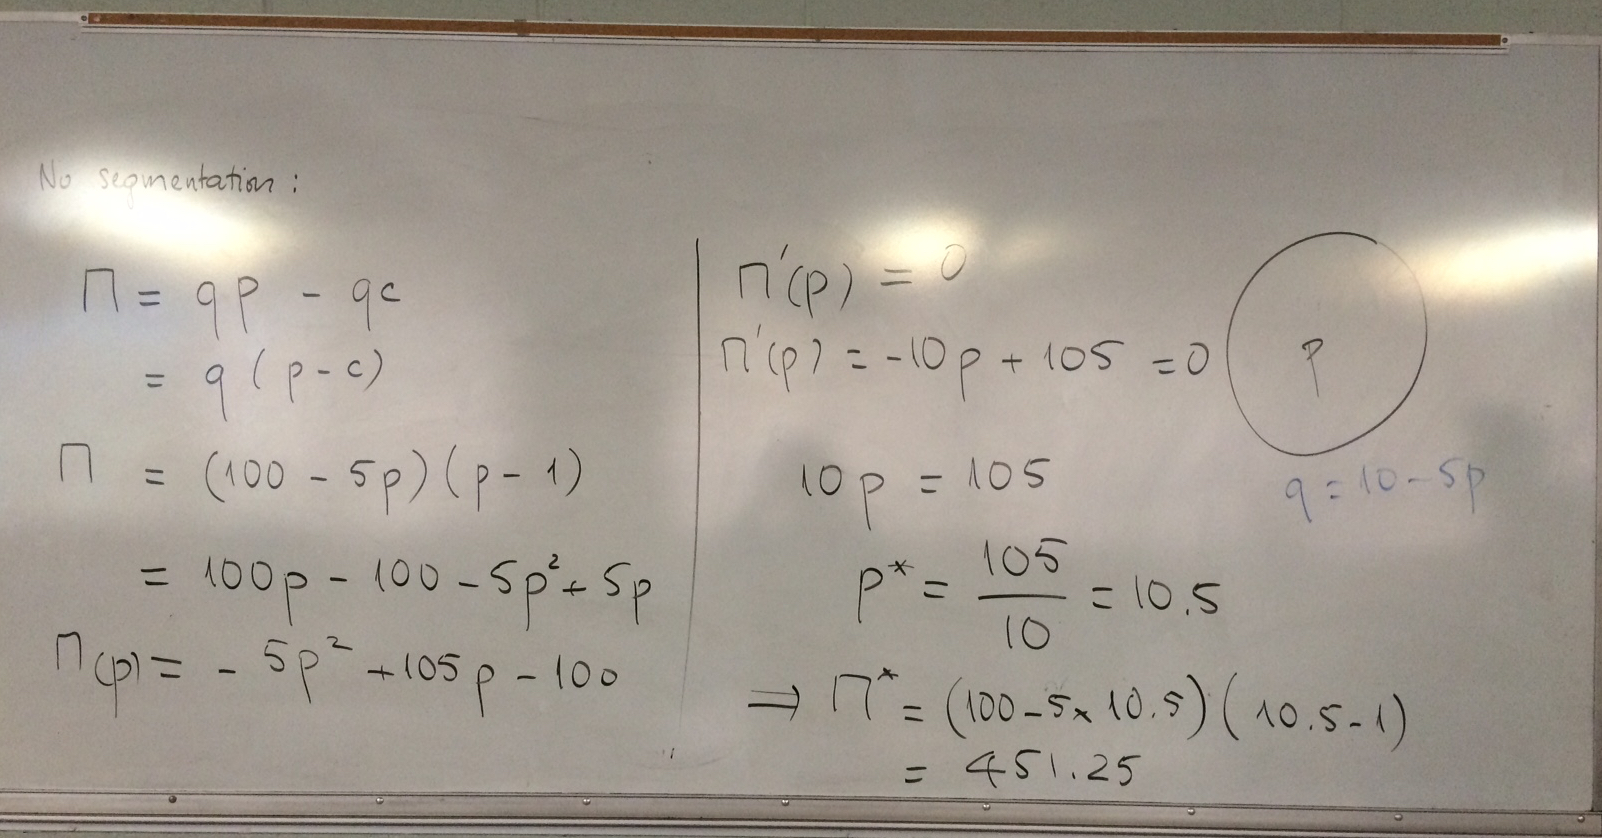 No segmentation :
Π = qp - qc
= q ( p - c )
Π = (100 - 5p) ( p - 1 )
= 100p - 100 - 5p² + 5p
Π(p) = - 5p² + 105p - 100
Π'(p) = 0
Π'(p) = -10p + 105 = 0
10p = 105
p* = 105/10 = 10.5
⇒ Π* = (100 - 5 x 10.5) ( 10.5 - 1 )
= 451.25
p
q = 10 - 5p